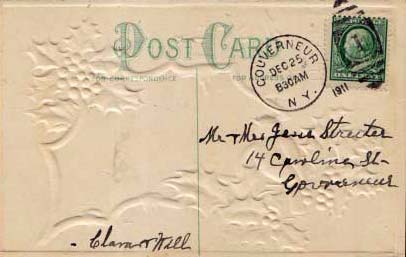 POST CARD
FOR CORRESPONDENCE
FOR ADDRESS
GOUVERNEUR
DEC 25
830AM
N.Y.
1911
Mr & Mrs Jesse Streeter
14 Caroline St-
Gouverneur
- Clara & Will